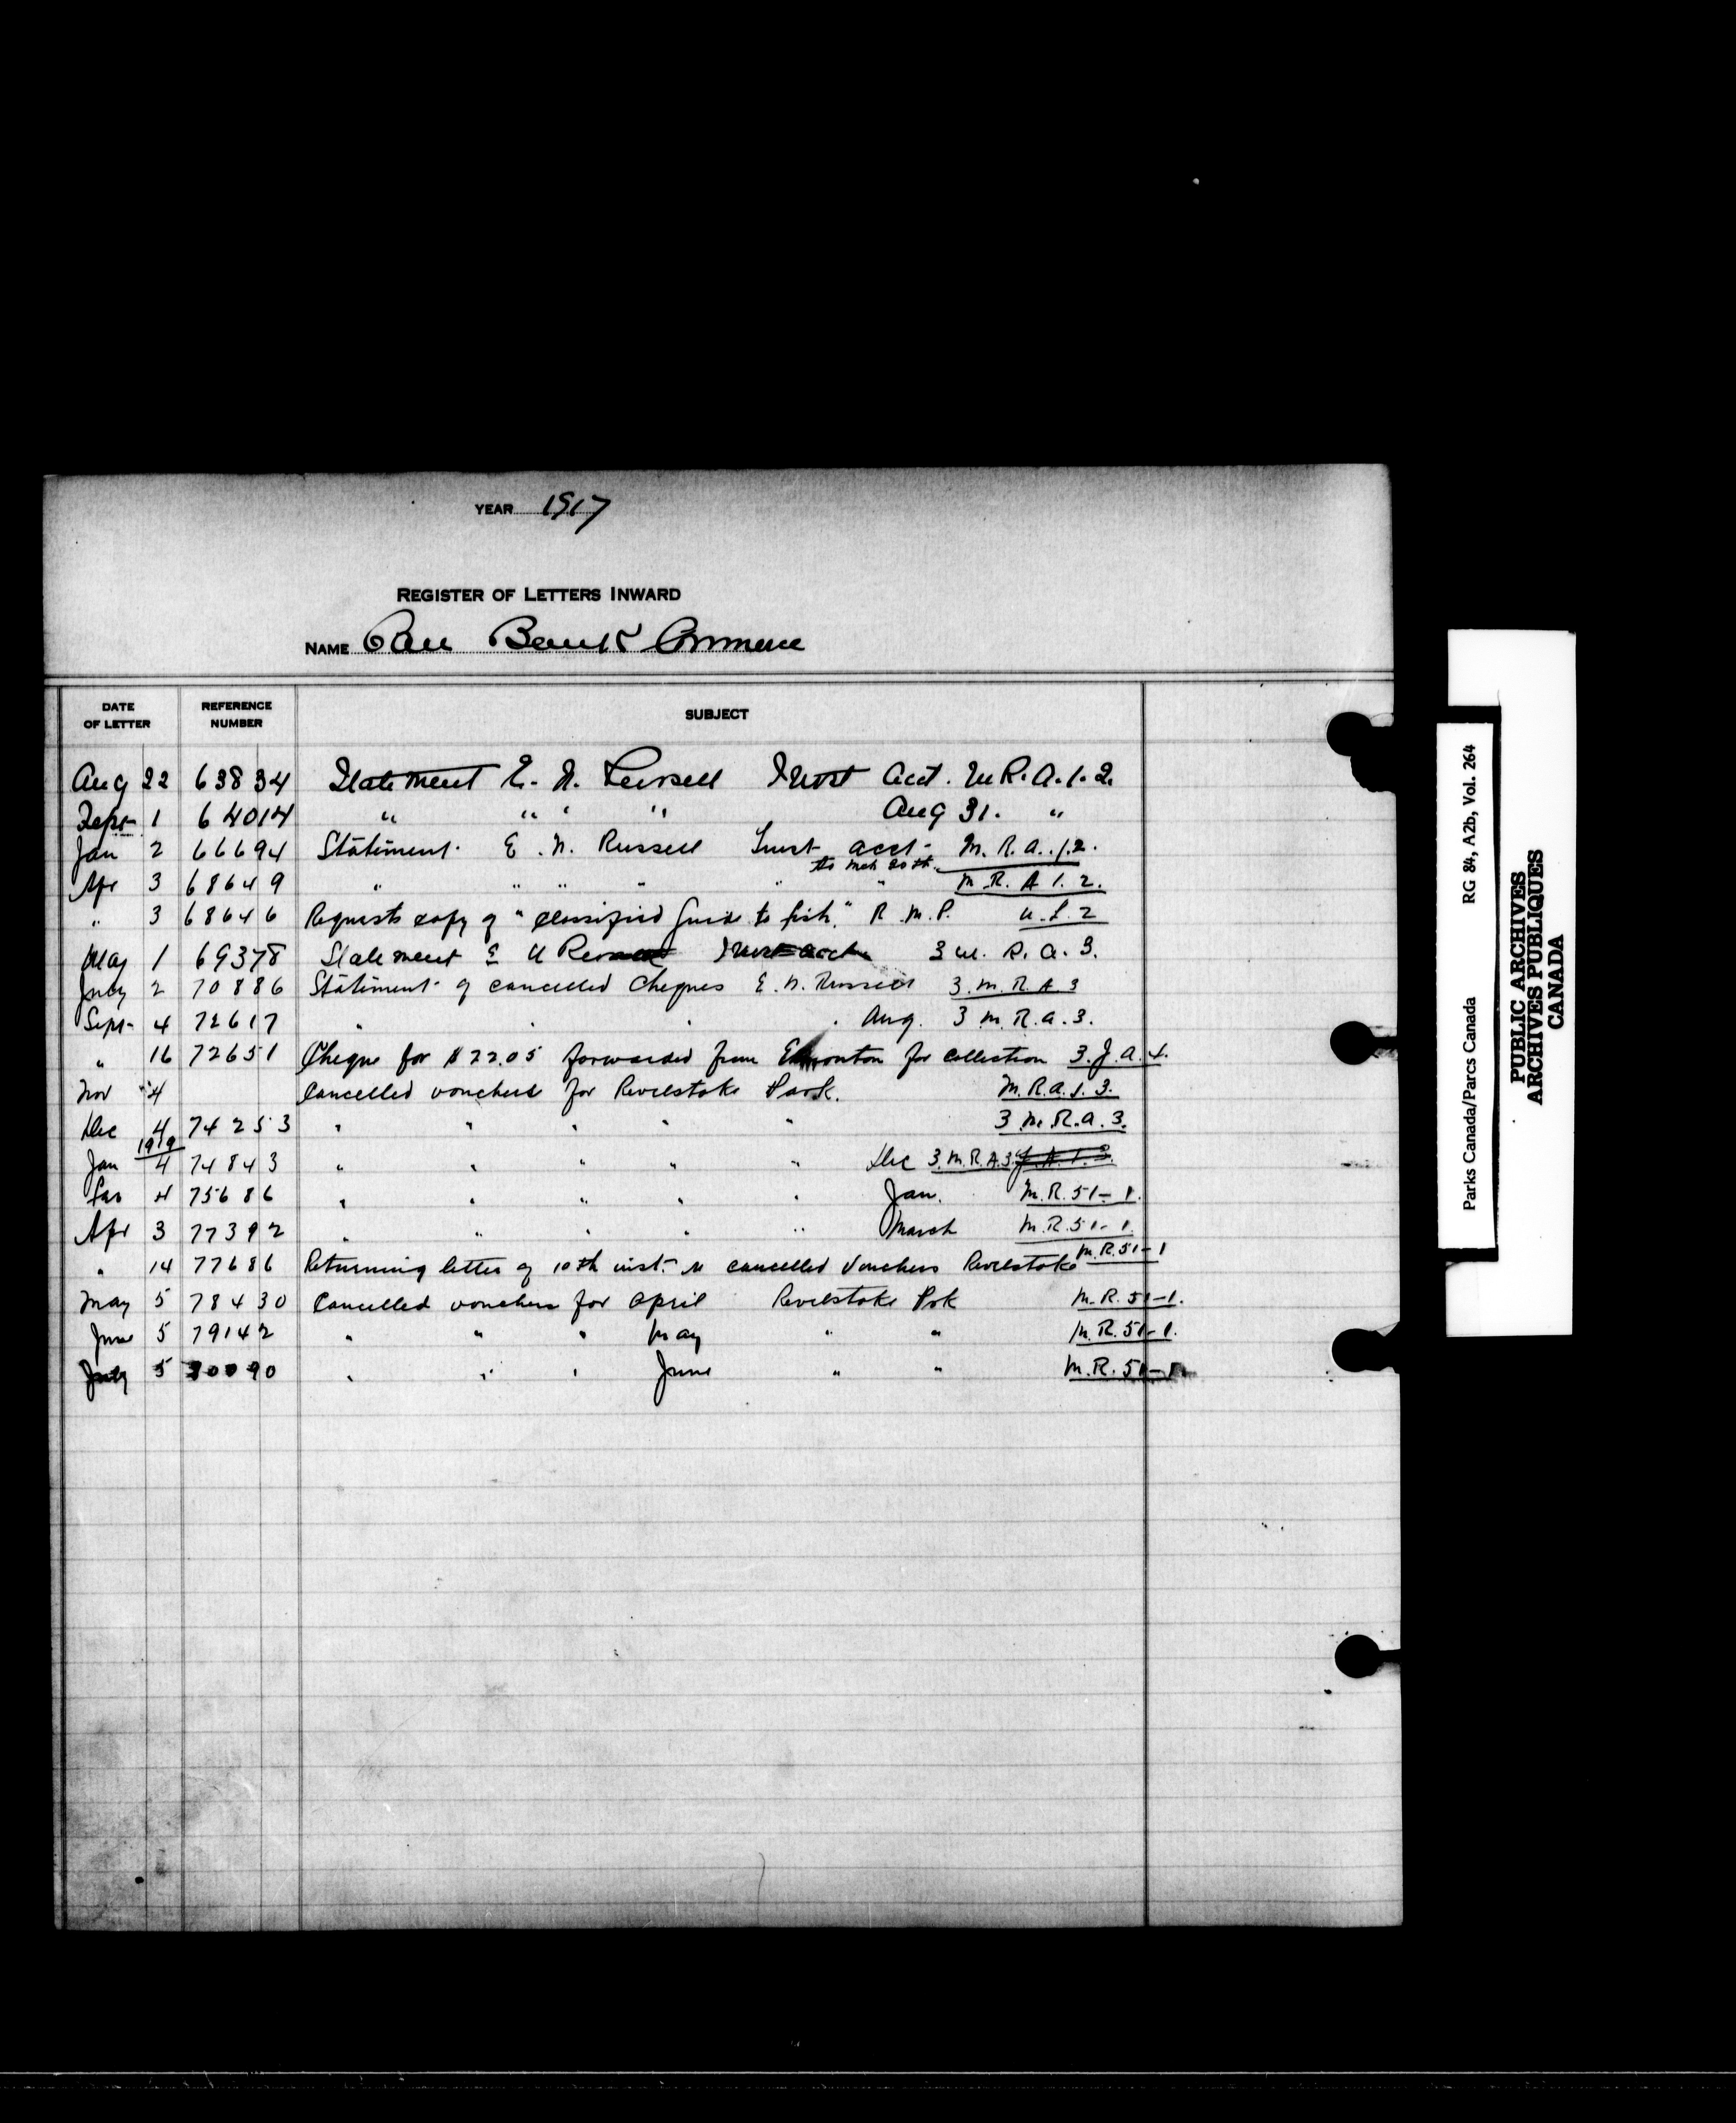 YEAR 1917
REGISTER OF LETTERS INWARD
NAME Can Bank Commerce
DATE OF LETTER REFERENCE NUMBER SUBJECT
Aug 22 63834 Statement E. N. Russell Trust Acct. M.R.A.1.2.
Sept 1 64014 " " " " Aug 31. "
Jan 2 66694 Statement E. N. Russell Trust acct. M.R.A.1.2.
to Mch 20th.
Apr 3 68649 " " " " " " M.R.A 1.2.
" 3 68646 Requests copy of "Classified Guide to fish." R.M.P. U.L.2
May 1 69378 Statement E N Russell Trust acct 3 M.R.A.3.
July 2 70886 Statement of cancelled Cheques E.N. Russell 3.M.R.A.3
Sept 4 72617 " " " " Aug. 3 M.R.A.3.
" 16 72651 Cheque for $22.05 forwarded from Edmonton for collection 3.J.A.4.
Nov 4 Cancelled vouchers for Revelstoke Park. M.R.A.1.3.
Dec 4 74253 " " " " " 3 M.R.A.3.
1919
Jan 4 74843 " " " " " Dec 3.M.R.A.3.
4 75686 " " " " " Jan. M.R.51-1.
Apr 3 77392 " " " " " March M.R.51-1.
" 14 77686 Returning letter of 10th inst. re cancelled Vouchers Revelstoke M.R.51-1
May 5 78430 Cancelled vouchers for April Revelstoke Prk M.R.51-1.
June 5 79142 " " " May " " M.R.51-1.
July 5 80090 " " " June " " M.R.51-1
Parks Canada/Parcs Canada RG 84, A2b, Vol. 264
PUBLIC ARCHIVES
ARCHIVES PUBLIQUES
CANADA